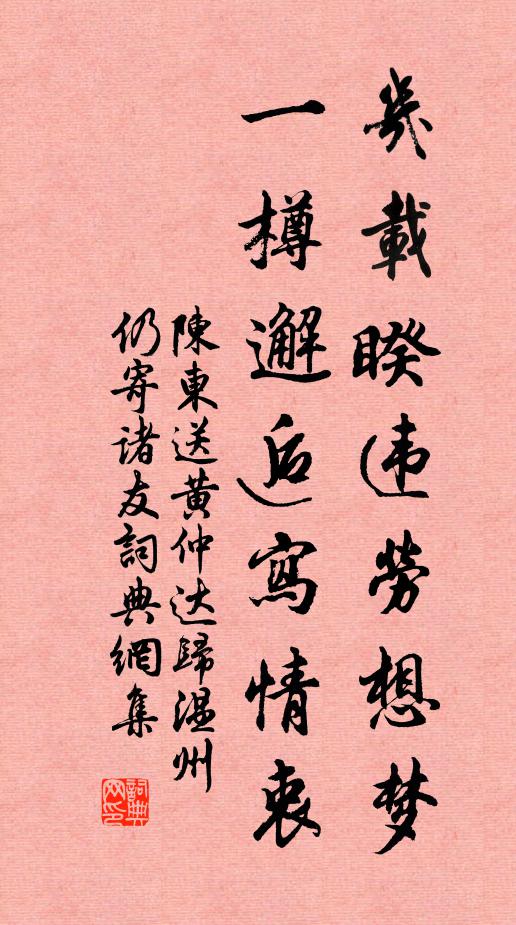 幾載暌违勞想梦
一樽邂逅寫情衷
陳東送黃仲达歸溫州
仍寄诸友詞典網集
詞典
网印